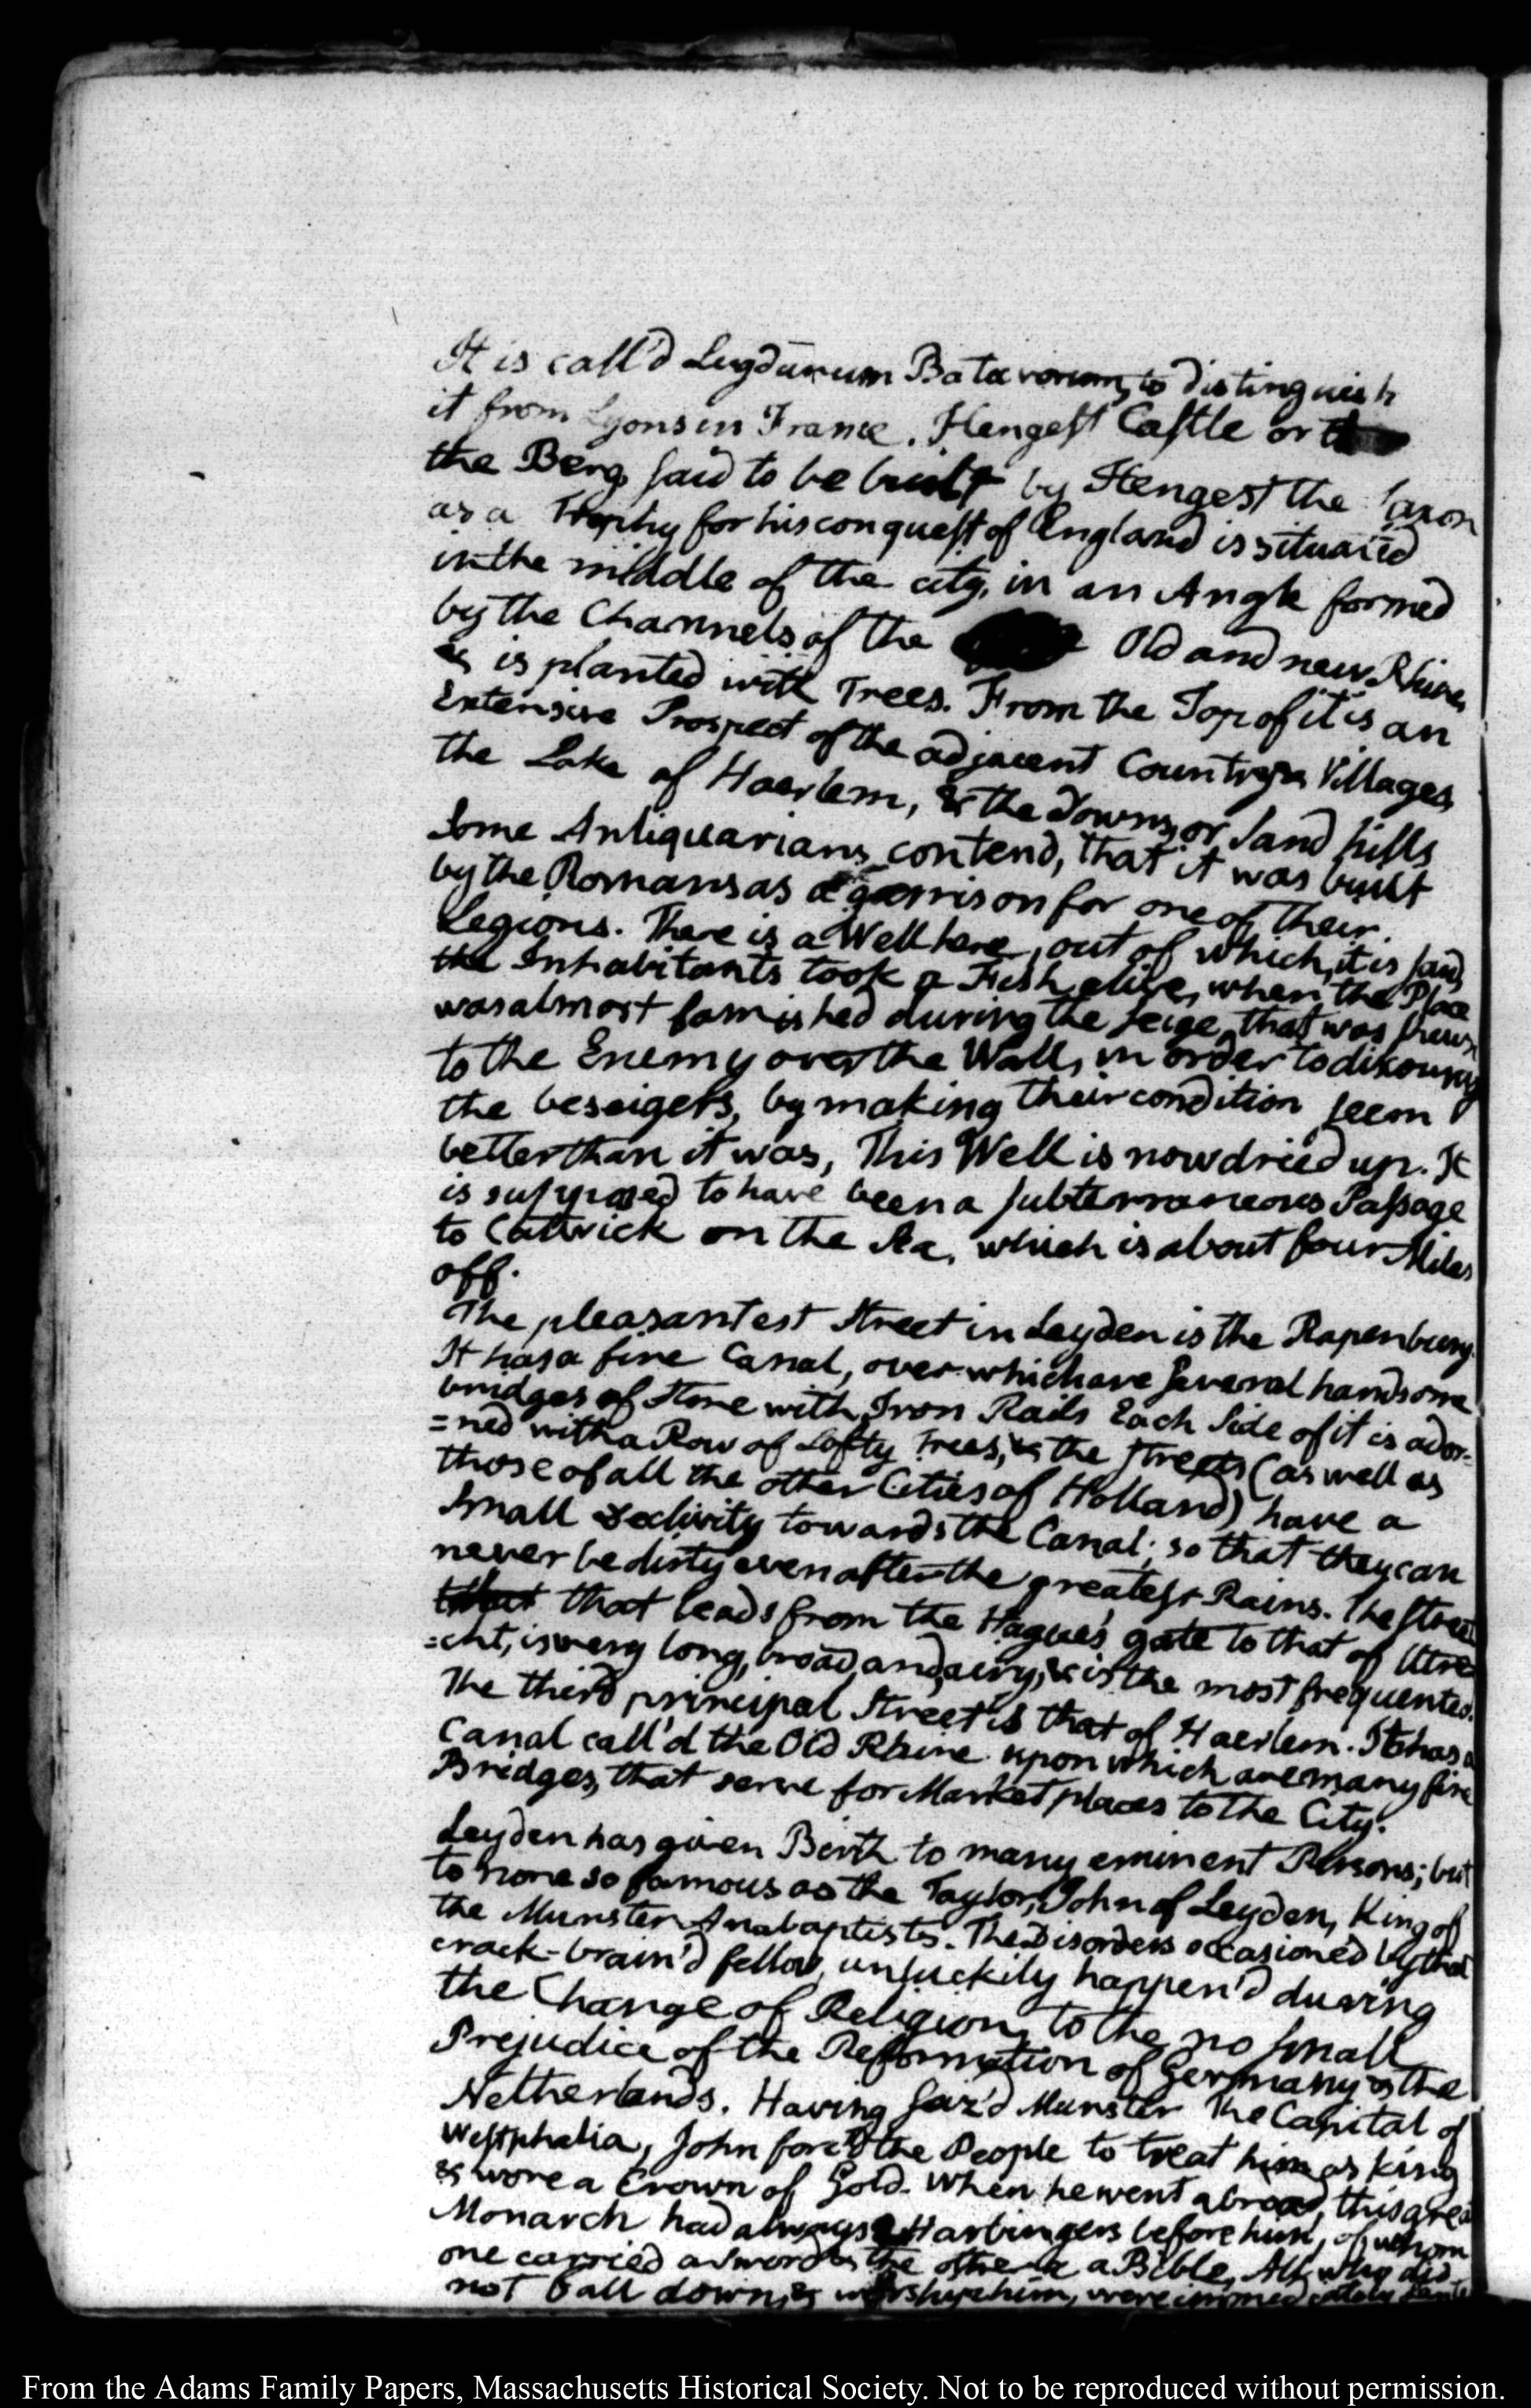 It is call'd Lugdunum Batavorum, to distinguish
it from Lyons in France. Hengest Castle or
the Berg, said to be built by Hengest the Saxon
as a Trophy for his conquest of England is situated
in the middle of the city, in an Angle formed
by the Channels of the Old and new Rhine,
& is planted with Trees. From the Top of it is an
Extensive Prospect of the adjacent Country & Villages,
the Lake of Haerlem, & the Downs, or Sand hills
Some Antiquarians contend, that it was built
by the Romans as a garrison for one of their
Legions. There is a Well here, out of which, it is said,
the Inhabitants took a Fish alive, when the Place
was almost famished during the seige, that was
to the Enemy over the Wall, in order to discourage
the beseigers, by making their condition seem
better than it was, This Well is now dried up. It
is supposed to have been a subterraneous Passage
to Catwick on the Sea, which is about four Miles
off.
The pleasantest Street in Leyden is the Rapenburg.
It has a fine Canal, over which are several handsome
bridges of Stone with Iron Rails Each Side of it is ador-
=ned with a Row of Lofty Trees, & the Streets (as well as
those of all the other Cities of Holland) have a
small declivity towards the Canal; so that they can
never be dirty even after the greatest Rains. The Street
that leads from the Hague's gate to that of Utre
=cht, is very long, broad, and airy, & is the most frequented.
The third principal Street is that of Haerlem. It has a
Canal call'd the Old Rhine upon which are many fine
Bridges, that serve for Market places to the City.
Leyden has given Birth to many eminent Persons; but
to none so famous as the Taylor, John of Leyden, King of
the Munster Anabaptists. The Disorders occasioned by that
crack-brain'd fellow, unluckily happen'd during
the Change of Religion, to the no small
Prejudice of the Reformation of Germany & the
Netherlands. Having seiz'd Munster the Capital of
Westphalia, John forc'd the People to treat him as king
& wore a Crown of Gold. When he went abroad, this great
Monarch had always 2 Harbingers before him, of whom
one carried a sword & the other a Bible, All who did
not fall down, & worship him, were immediately
From the Adams Family Papers, Massachusetts Historical Society. Not to be reproduced without permission.